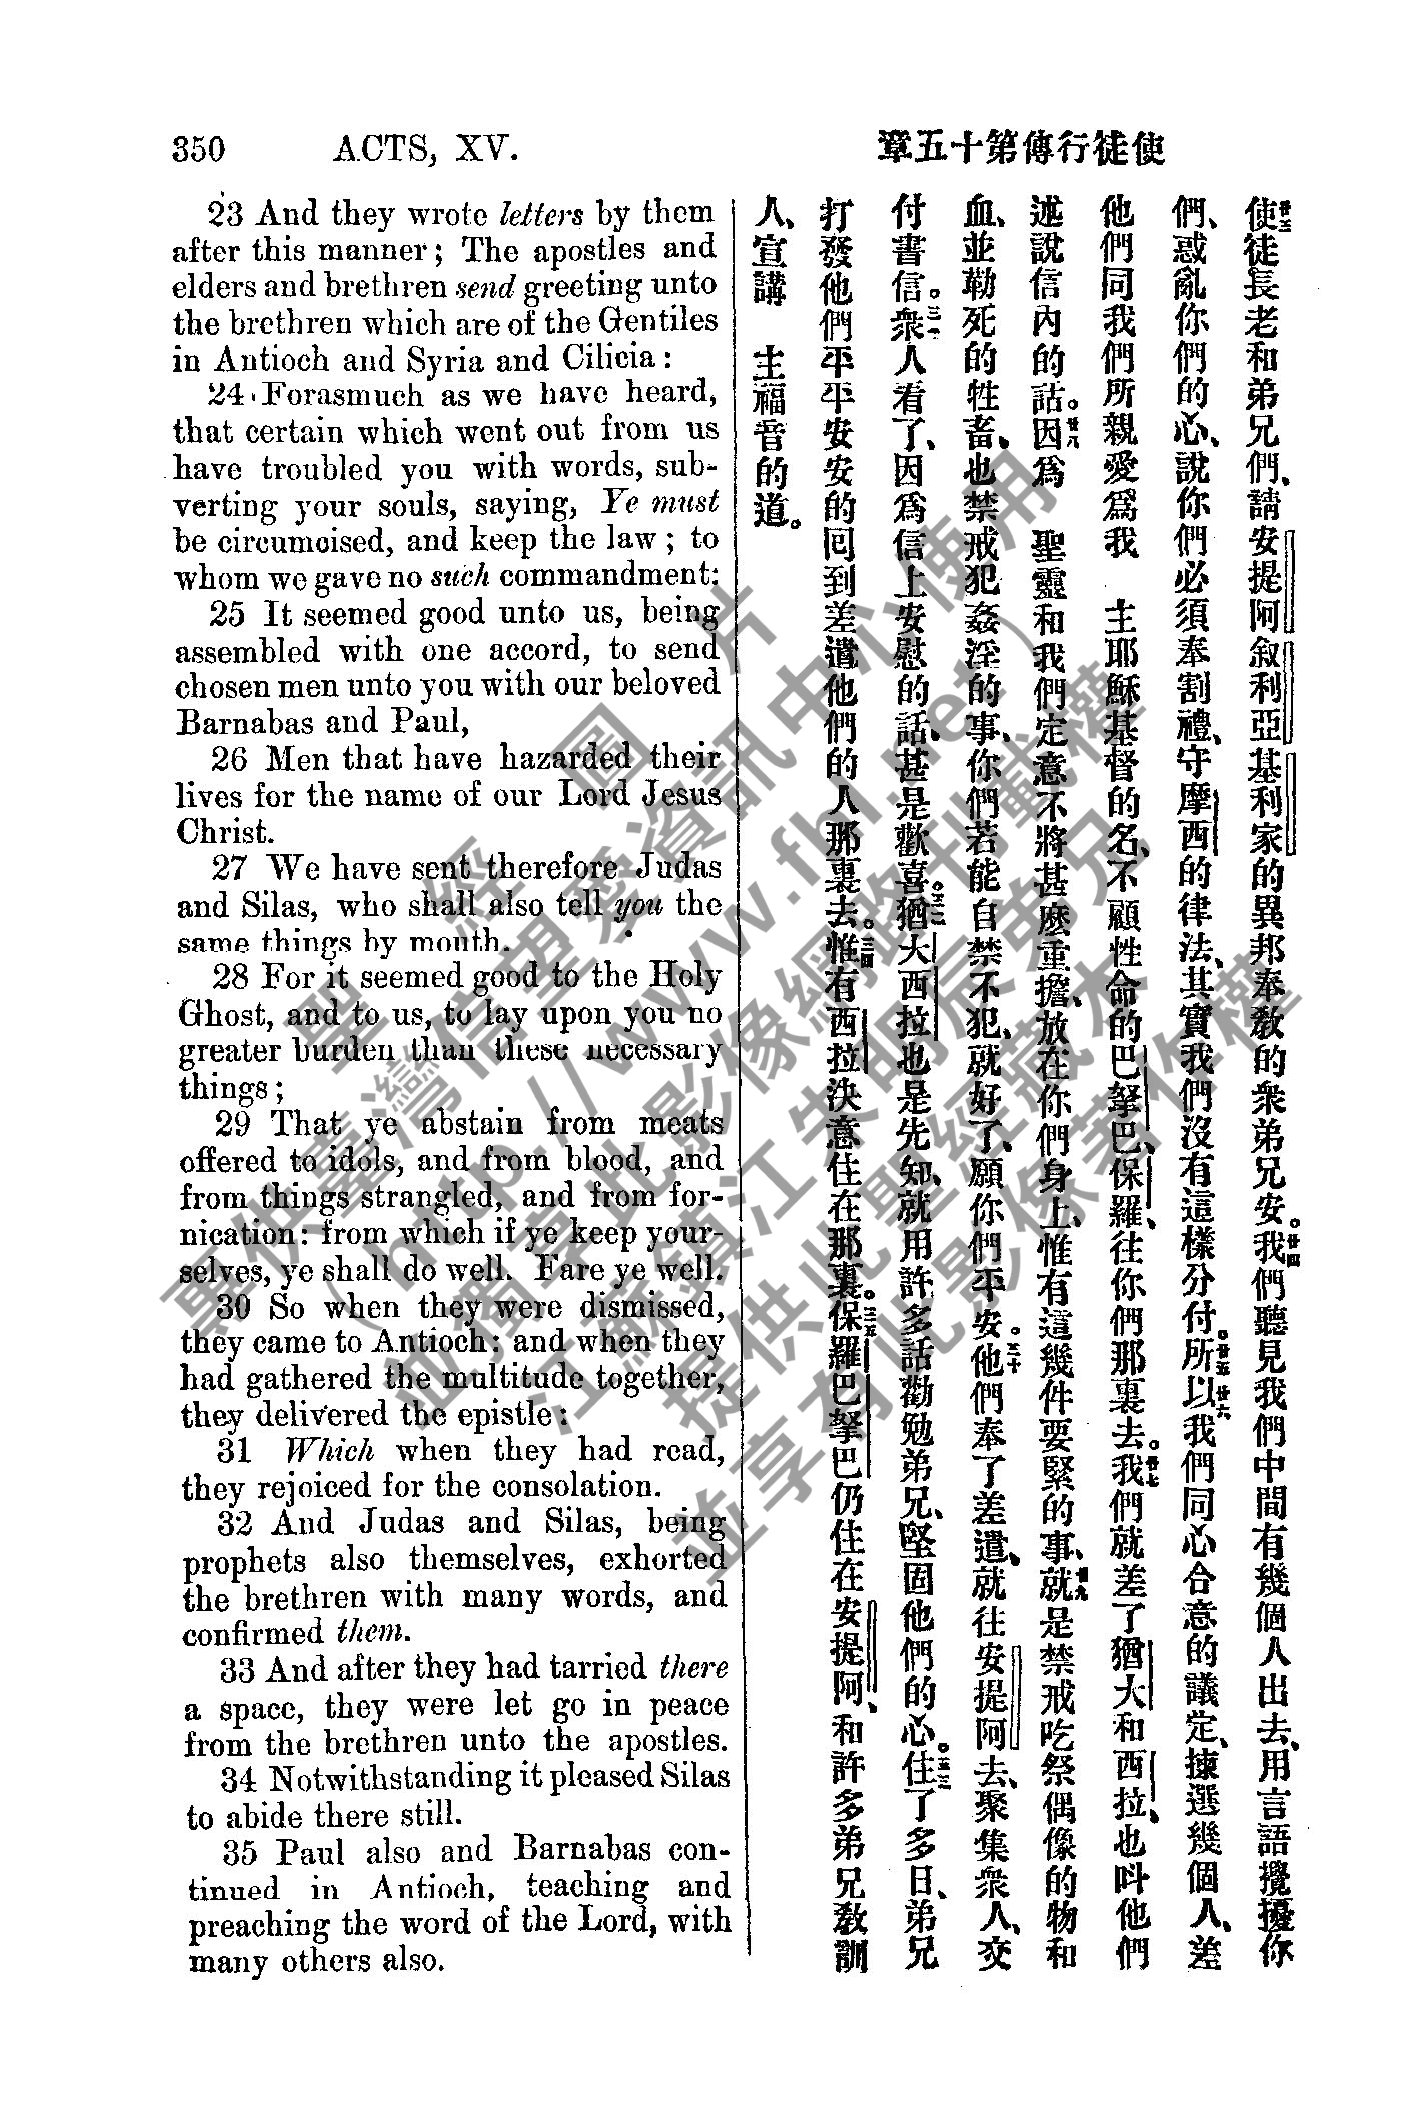 350 ACTS, XV.
使徒行傳第十五章
23 And they wrote letters by them
after this manner; The apostles and
elders and brethren send greeting unto
the brethren which are of the Gentiles
in Antioch and Syria and Cilicia:
24 Forasmuch as we have heard,
that certain which went out from us
have troubled you with words, sub-
verting your souls, saying, Ye must
be circumcised, and keep the law; to
whom we gave no such commandment:
25 It seemed good unto us, being
assembled with one accord, to send
chosen men unto you with our beloved
Barnabas and Paul,
26 Men that have hazarded their
lives for the name of our Lord Jesus
Christ.
27 We have sent therefore Judas
and Silas, who shall also tell you the
same things by mouth.
28 For it seemed good to the Holy
Ghost, and to us, to lay upon you no
greater burden than these necessary
things;
29 That ye abstain from meats
offered to idols, and from blood, and
from things strangled, and from for-
nication: from which if ye keep your-
selves, ye shall do well. Fare ye well.
30 So when they were dismissed,
they came to Antioch: and when they
had gathered the multitude together,
they delivered the epistle:
31 Which when they had read,
they rejoiced for the consolation.
32 And Judas and Silas, being
prophets also themselves, exhorted
the brethren with many words, and
confirmed them.
33 And after they had tarried there
a space, they were let go in peace
from the brethren unto the apostles.
34 Notwithstanding it pleased Silas
to abide there still.
35 Paul also and Barnabas con-
tinued in Antioch, teaching and
preaching the word of the Lord, with
many others also.
廿三使徒長老和弟兄們、請安提阿敘利亞基利家的異邦奉教的衆弟兄安。廿四我們聽見我們中間有幾個人出去、用言語攪擾你
們、惑亂你們的心、說你們必須奉割禮、守摩西的律法、其實我們沒有這樣分付。廿五所以廿六我們同心合意的議定、揀選幾個人、差
他們同我們所親愛爲我 主耶穌基督的名、不顧性命的巴拏巴、保羅、往你們那裏去。廿七我們就差了猶大和西拉、也叫他們
述說信內的話。廿八因爲 聖靈和我們定意不將甚麼重擔、放在你們身上、惟有這幾件要緊的事、廿九就是禁戒吃祭偶像的物和
血、並勒死的牲畜、也禁戒犯姦淫的事、你們若能自禁不犯、就好了、願你們平安。三十他們奉了差遣、就往安提阿去、聚集衆人、交
付書信。三一衆人看了、因爲信上安慰的話、甚是歡喜。三二猶大西拉也是先知、就用許多話勸勉弟兄、堅固他們的心。三三住了多日、弟兄
打發他們平平安安的囘到差遣他們的人那裏去。三四惟有西拉決意住在那裏。三五保羅巴拏巴仍住在安提阿、和許多弟兄敎訓
人、宣講 主福音的道。
聖經圖片
專供臺灣信望愛資訊中心使用
(http://www.fhl.net)
並獨享此影像網路刊載權
江蘇鎮江朱明辰弟兄
提供此聖經藏本
並享有此影像著作權